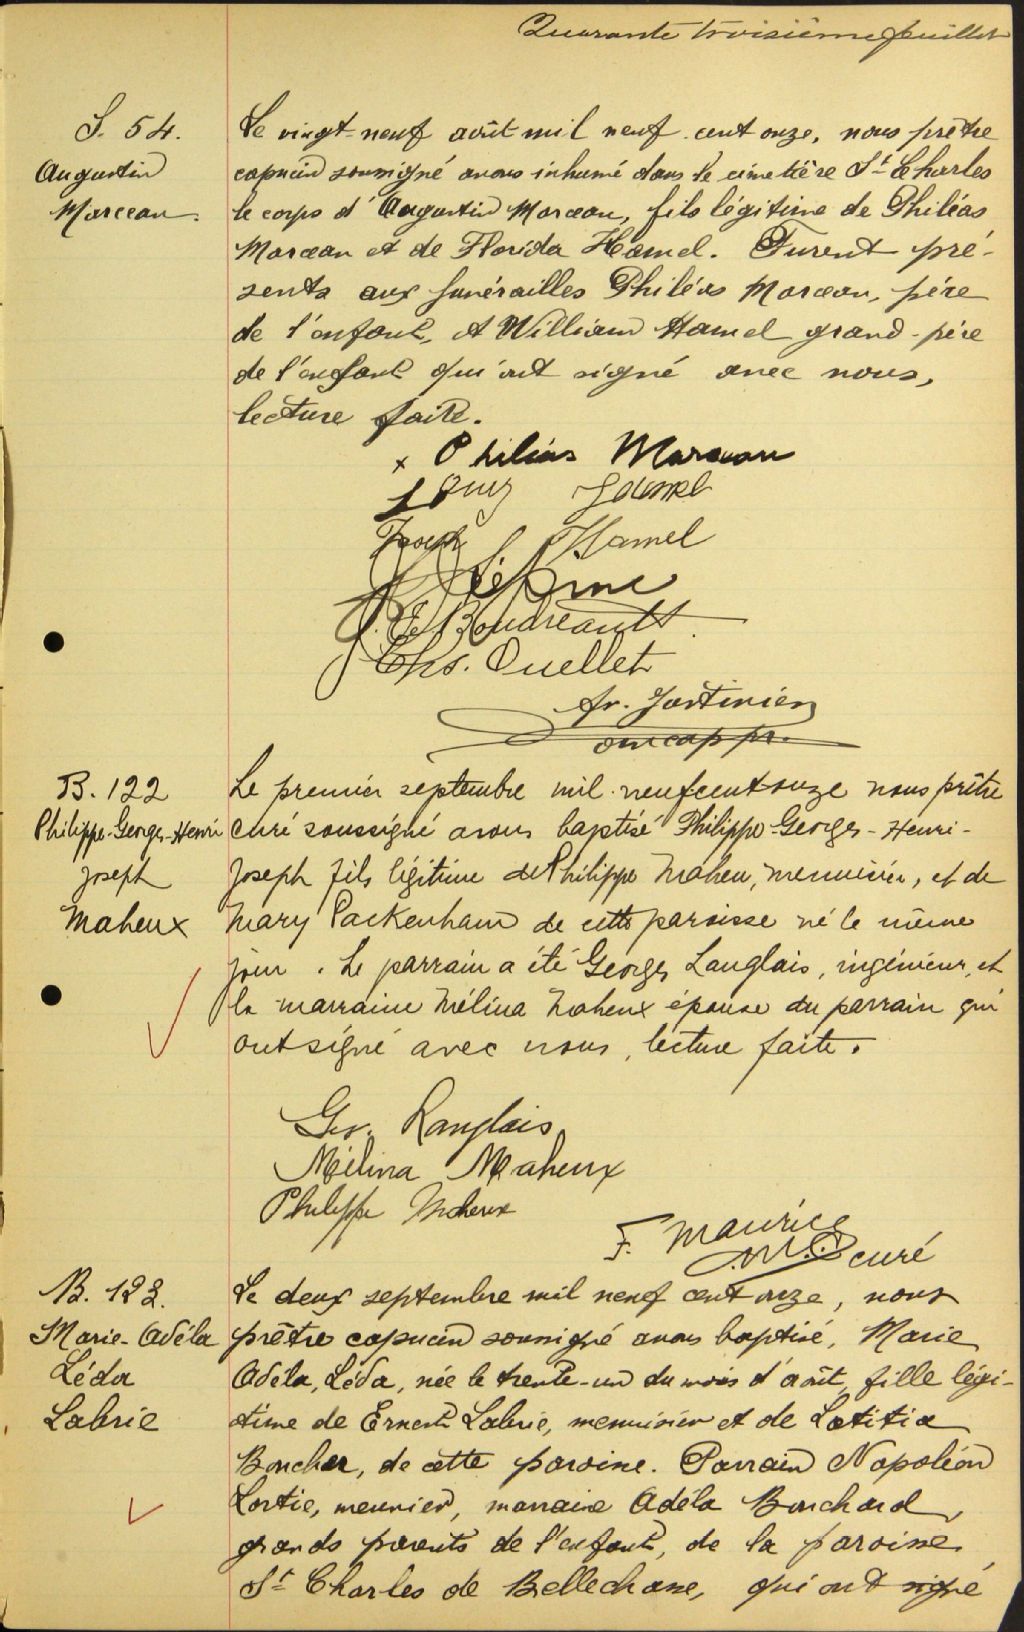 Quarante troisième feuillet
S. 54.
Augustin
Marceau.
Le vingt-neuf août mil neuf cent onze, nous prêtre
capucin soussigné avons inhumé dans le cimetière St Charles
le corps d'Augustin Marceau, fils légitime de Philéas
Marceau et de Florida Hamel. Furent pré-
sents aux funérailles Philéas Marceau, père
de l'enfant, et William Hamel grand-père
de l'enfant qui ont signé avec nous,
lecture faite.
x Philéas Marceau
Hamel
Joseph Hamel
Lépine
J. E. Boudreault
Chs. Ouellet
fr. Justinien
o.m.cap pr.
B. 122
Philippe-Georges-Henri
Joseph
Maheux
Le premier septembre mil neuf cent onze nous prêtre
curé soussigné avons baptisé Philippe-Georges-Henri-
Joseph fils légitime de Philippe Maheu, menuisier, et de
Mary Packenham de cette paroisse né le même
jour. Le parrain a été Georges Langlais, ingénieur, et
la marraine Mélina Maheux épouse du parrain qui
ont signé avec nous, lecture faite.
Geo. Langlais
Mélina Maheux
Philippe Maheux
F. Maurice
o.m.c curé
B. 123.
Marie-Adéla
Léda
Labrie
Le deux septembre mil neuf cent onze, nous
prêtre capucin soussigné avons baptisé, Marie
Adéla, Léda, née le trente-un du mois d'août, fille légi-
time de Ernest Labrie, menuisier et de Lætitia
Boucher, de cette paroisse. Parrain Napoléon
Lortie, meunier, marraine Adéla Bouchard,
grands parents de l'enfant, de la paroisse
St Charles de Bellechasse, qui ont signé